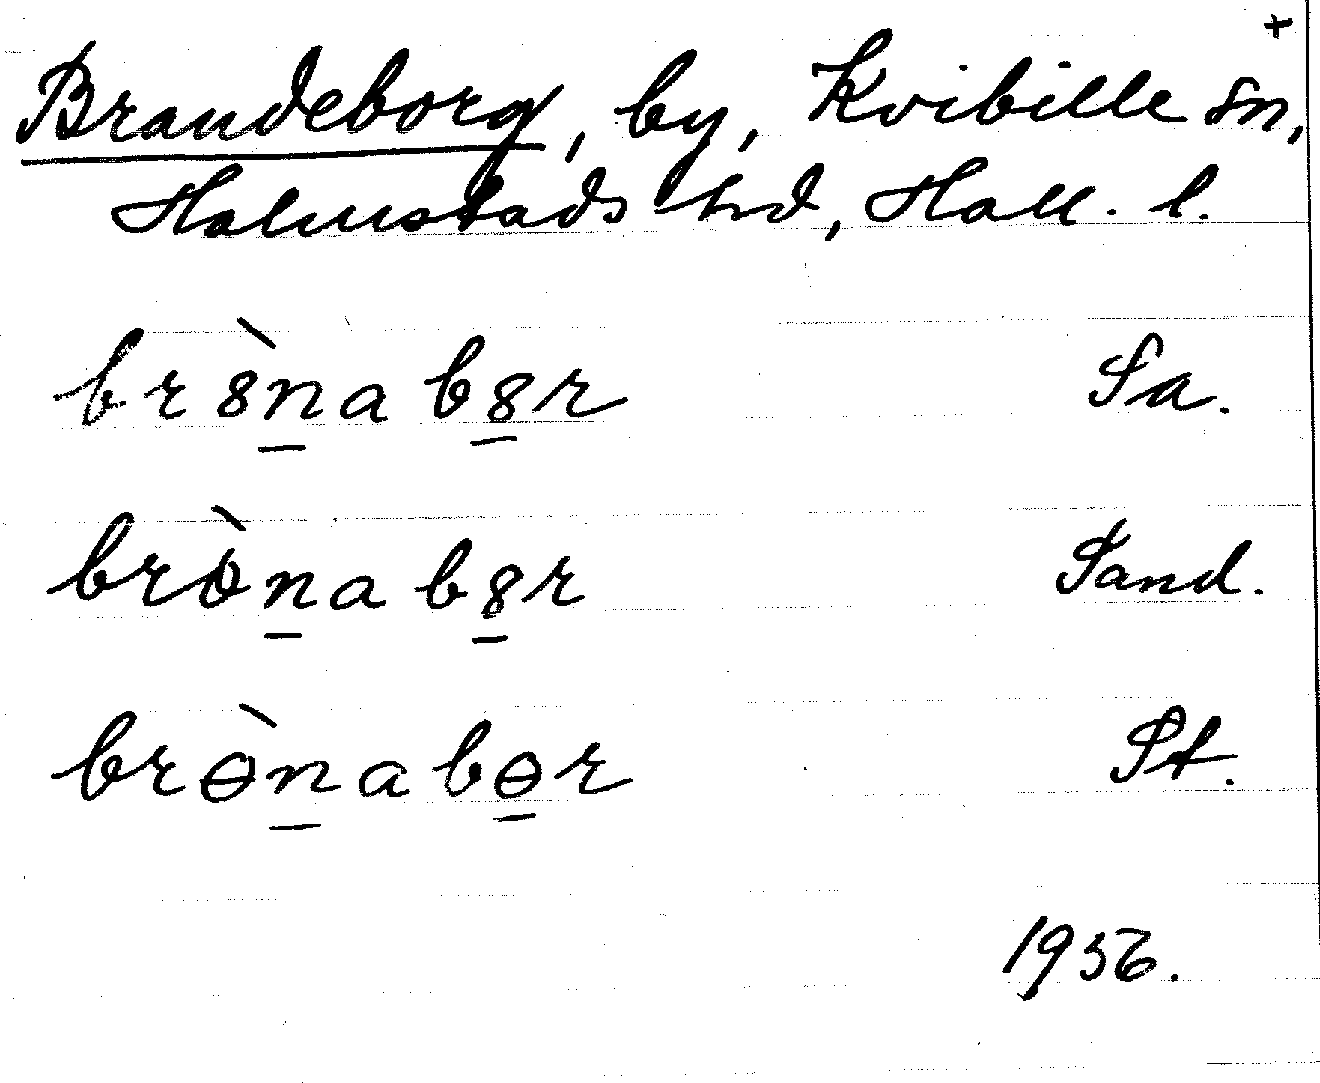 +
Brandeborg, by, Kvibille sn,
Halmstads hd, Hall. l.
br8̀n̲ab8̲r Sa.
bròn̲ab8̲r Sand.
brɵ̀n̲abɵ̲r St.
1936.